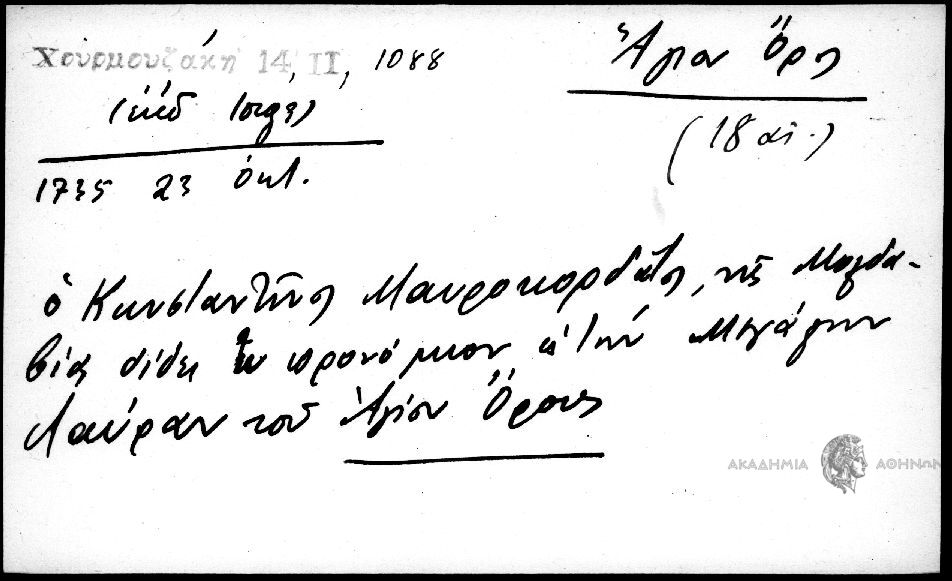 Χουρμουζάκη 14, II, 1088
Ἅγιον Ὄρος
(ἐκδ Ἰοργ.)
(18 αἰ.)
1735 23 ὀκτ.
ὁ Κωνσταντῖνος Μαυροκορδᾶτος, τῆς Μολδα-
βίας δίδει προνόμιον εἰς τὴν Μεγάλην
Λαύραν τοῦ Ἁγίου Ὄρους
ΑΚΑΔΗΜΙΑ ΑΘΗΝΩΝ